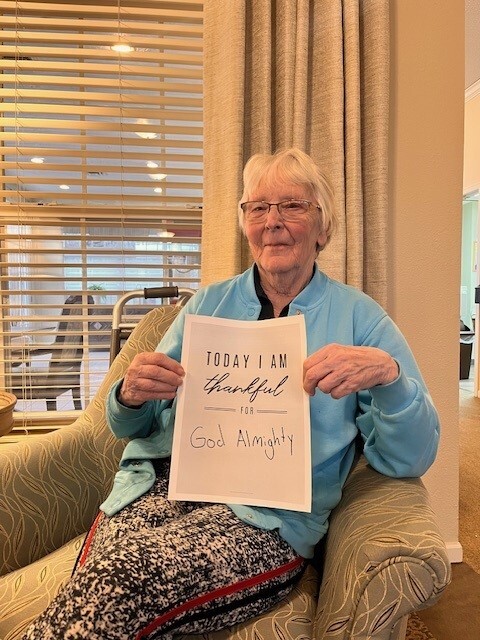 TODAY I AM
thankful
FOR
God Almighty